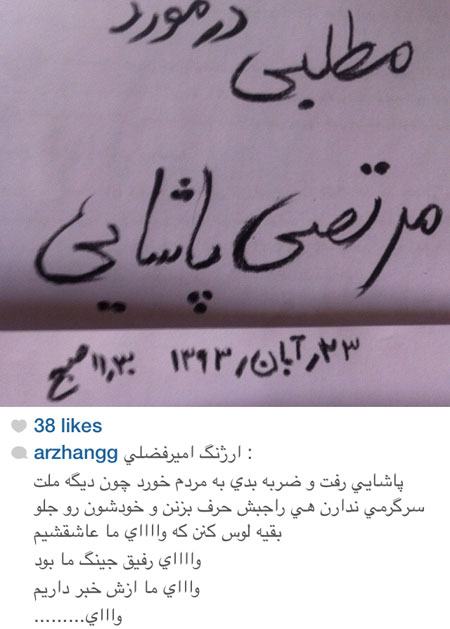 مطلبی در مورد
مرتضی پاشایی
۲۳ر آبان ر ۱۳۹۳ ۱۱٫۳۰ صبح
38 likes
arzhangg ارژنگ اميرفضلي :
پاشايي رفت و ضربه بدي به مردم خورد چون ديگه ملت
سرگرمي ندارن هي راجبش حرف بزنن و خودشون رو جلو
بقيه لوس كنن كه واااااي ما عاشقشيم
واااااي رفيق جينگ ما بود
وااااي ما ازش خبر داريم
واااي.........